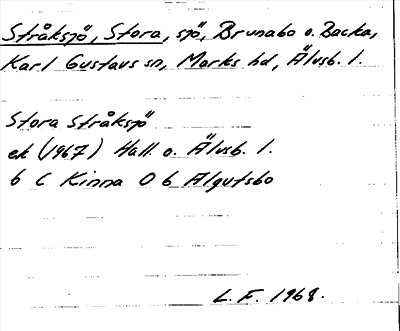 Stråksjö, Stora, sjö, Brunabo o. Backa,
Karl Gustavs sn, Marks hd, Älvsb. l.
Stora Stråksjö
ek (1967) Hall. o. Älvsb. l.
6 C Kinna 0 b Älgutsbo
L. F. 1968.